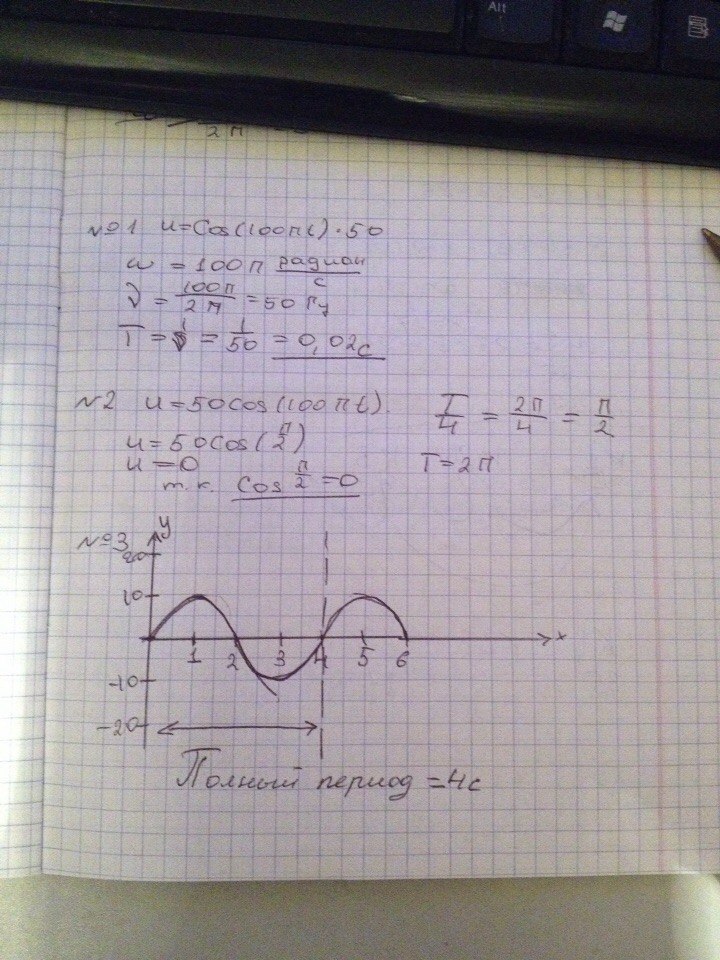 Alt
2π
№1 u=Cos(100πt)·50
ω = 100π радиан/с
ν = 100π/2π = 50 Гц
T = 1/ν = 1/50 = 0,02с
№2 u=50cos(100πt)
u=50cos(π/2)
u=0
т.к. Cos π/2 =0
T/4 = 2π/4 = π/2
T=2π
№3
y
20
10
1 2 3 4 5 6 x
-10
-20
Полный период =4с